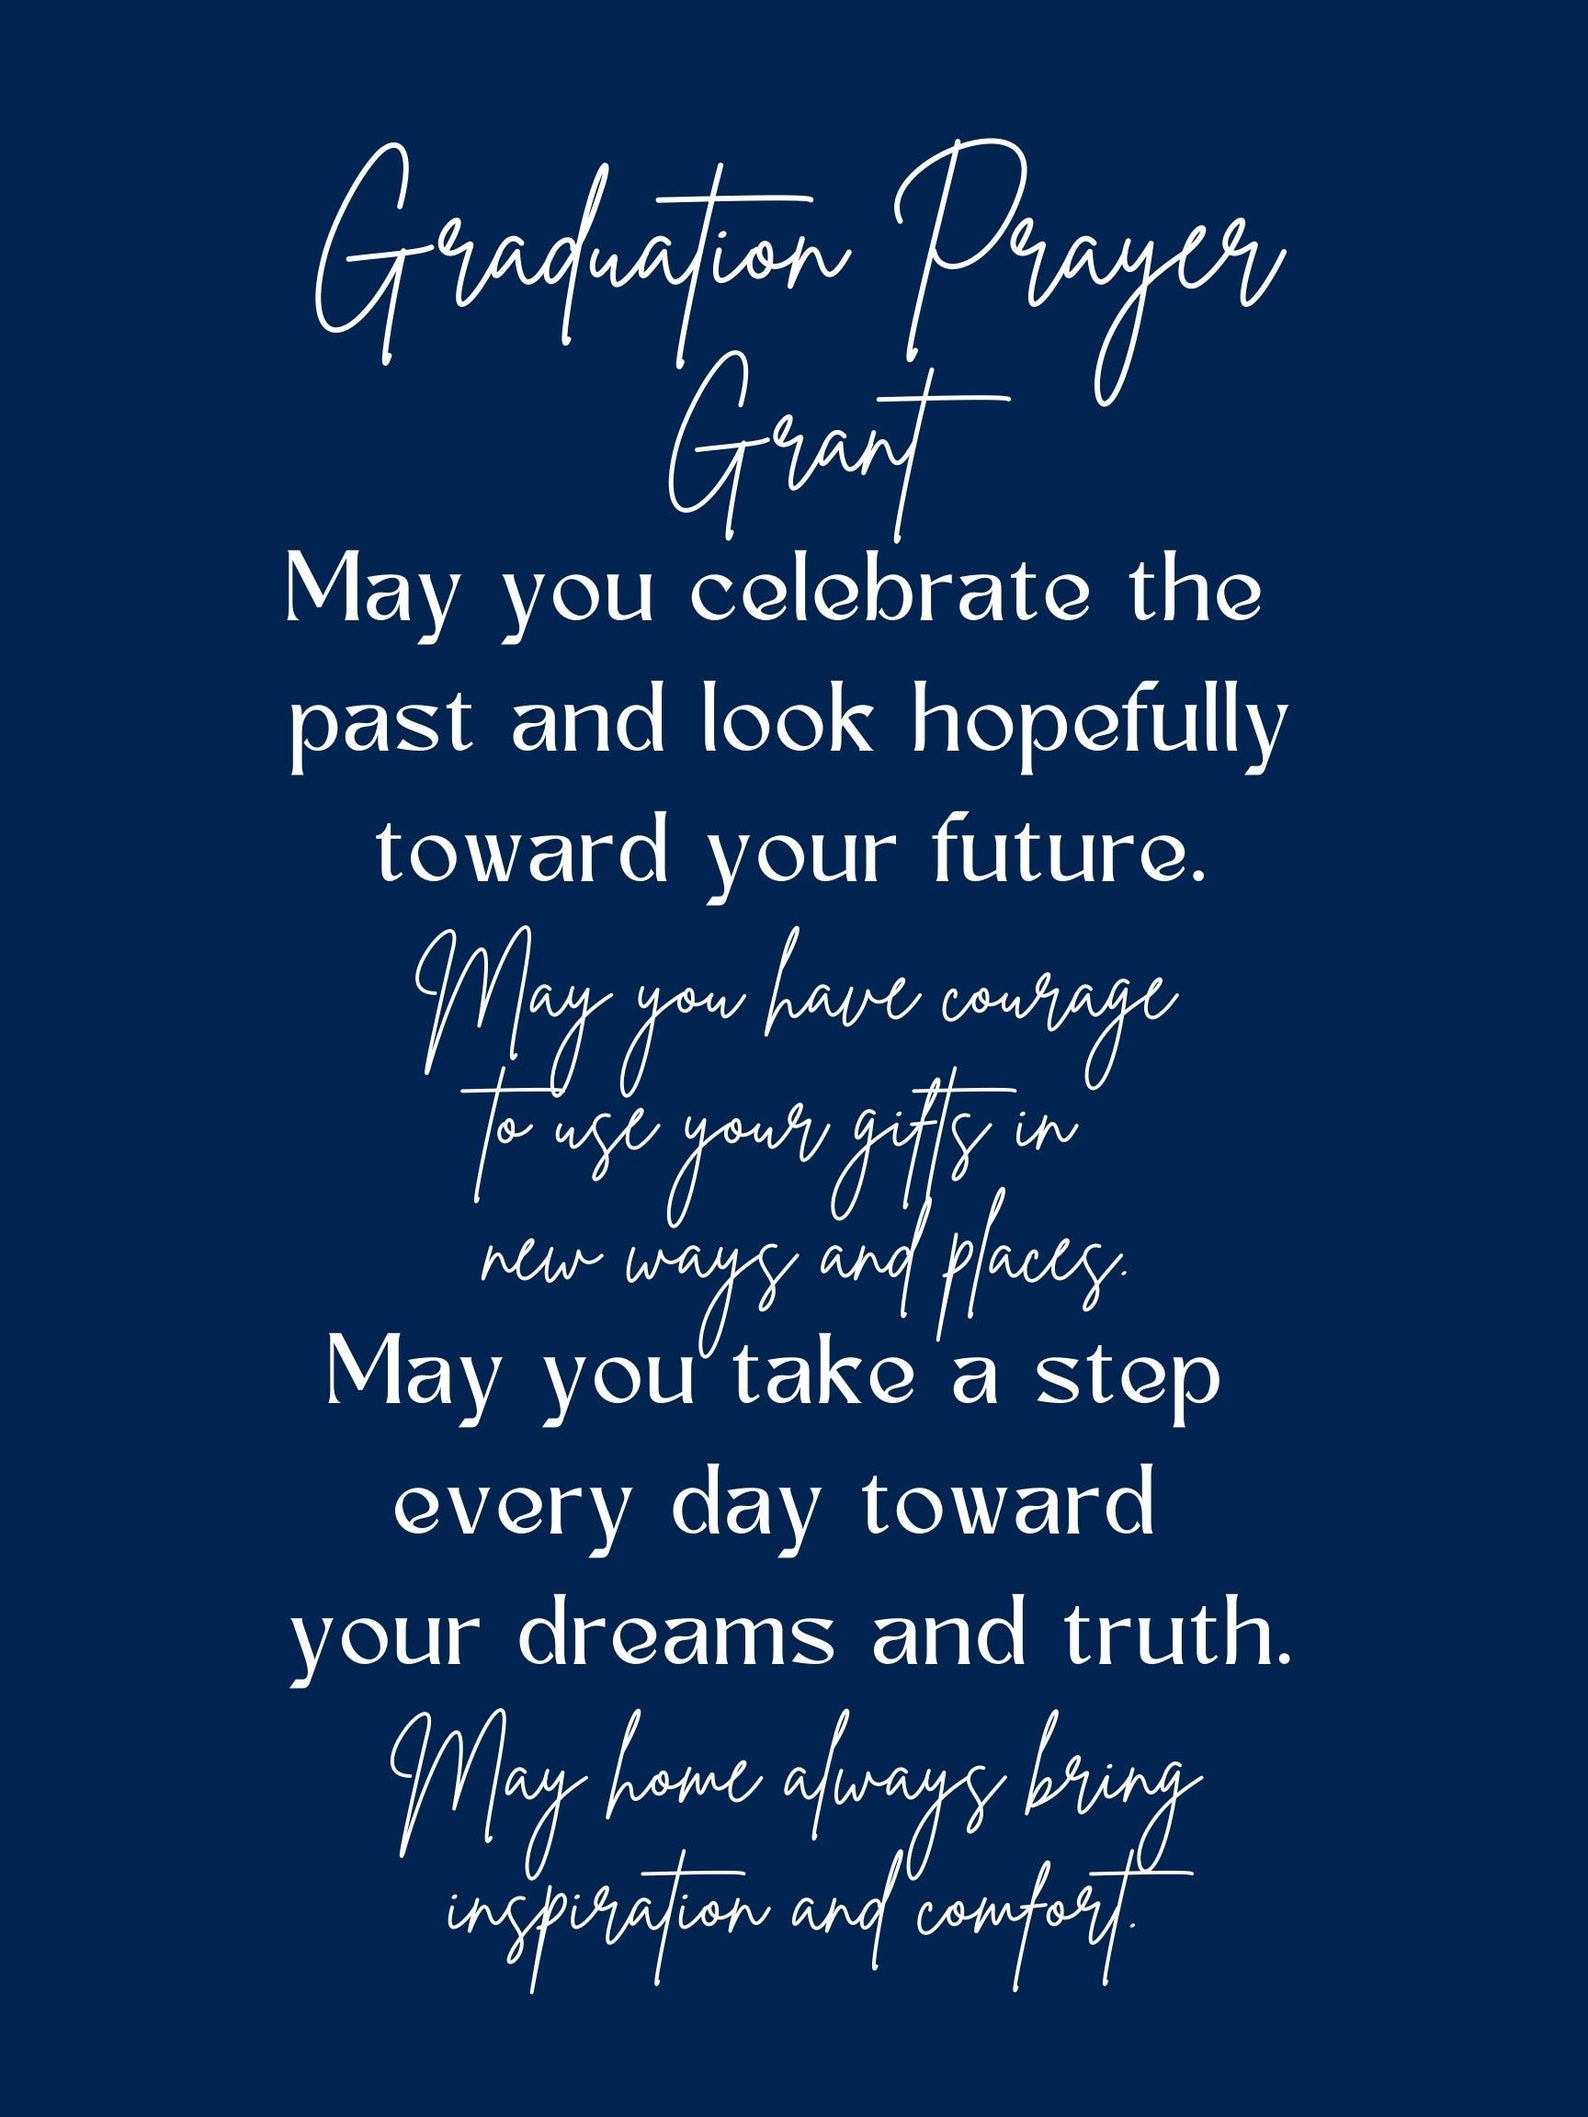 Graduation Prayer
Grant
May you celebrate the
past and look hopefully
toward your future.
May you have courage
to use your gifts in
new ways and places.
May you take a step
every day toward
your dreams and truth.
May home always bring
inspiration and comfort.